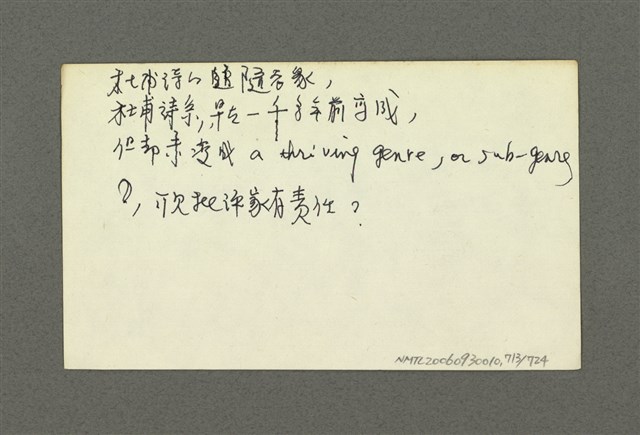 杜甫詩的追隨者眾，
杜甫詩系，早在一千多年前完成，
但卻未变成 a thriving genre, or sub-genre
?，可見批评家有责任？
NMTL20060930010,713/724